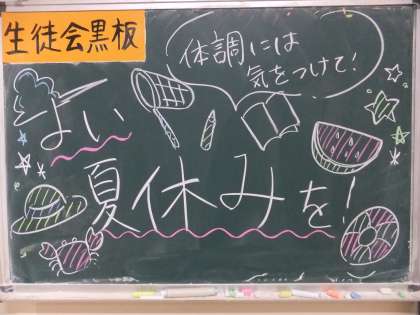 生徒会黒板
体調には
気をつけて!
よい
夏休みを!